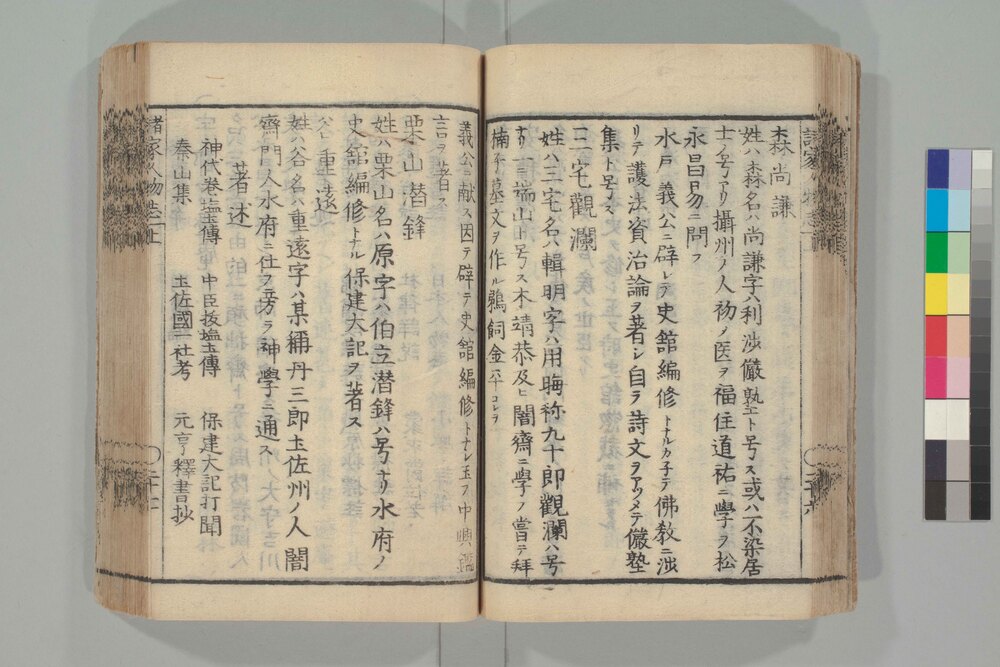 森尚謙
姓ハ森名ハ尚謙字ハ利渉儼塾ト号ス或ハ不染居
士ノ号アリ攝州ノ人初ノ医ヲ福住道祐ニ學ヲ松
永昌易ニ問フ
水戸義公ニ辟レテ史舘編修トナル力子テ佛教ニ渉
リテ護法資治論ヲ著シ自ラ詩文ヲアツメテ儼塾
集ト号ス
三宅觀瀾
姓ハ三宅名ハ輯明字ハ用晦称九十郎觀瀾ハ号
ナリ一ニ端山ト号ス木靖恭及ヒ闇齋ニ學フ嘗テ拜
楠子墓文ヲ作ル鵜飼金平コレヲ
義公ニ献ス因テ辟テ史舘編修トナレシ玉フ中興鑑
言ヲ著ス
栗山潜鋒
姓ハ栗山名ハ原字ハ伯立潜鋒ハ号ナリ水府ノ
史舘編修トナル保建大記ヲ著ス
谷重遠
姓ハ谷名ハ重遠字ハ某稱丹三郎土佐州ノ人闇
齋門人水府ニ仕フ云旁ラ神學ニ通ス
著述
神代卷塩土傳 中臣祓塩土傳 保建大記打聞
秦山集 土佐國二社考 元亨釋書抄
諸家人物志上
二十二